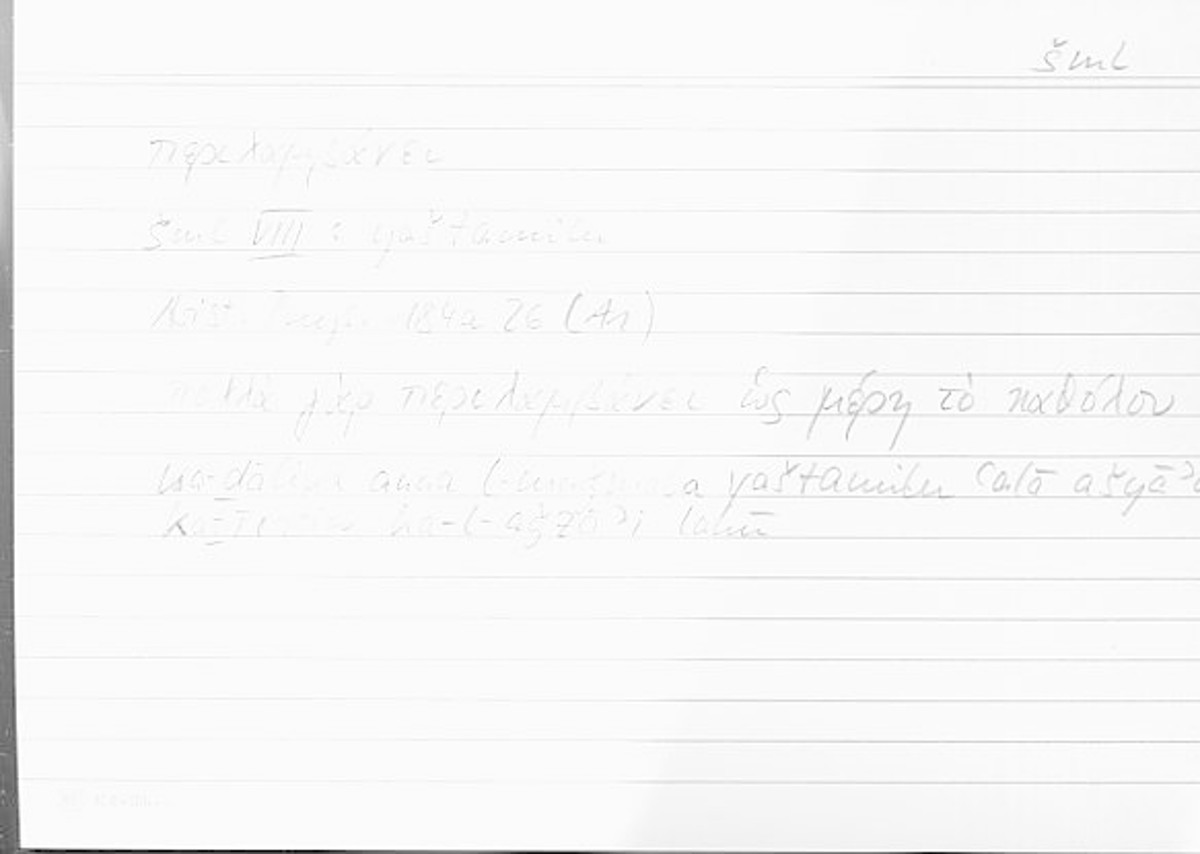 šml
περιλαμβάνει
šml VIII : yaštamilu
Arist. Phys. 184a 26 (Ar)
πολλὰ γὰρ περιλαμβάνει ὡς μέρη τὸ καθόλου
anna yaštamilu ʿalā ašyāʾa
ka-l-aǧzāʾi lahū